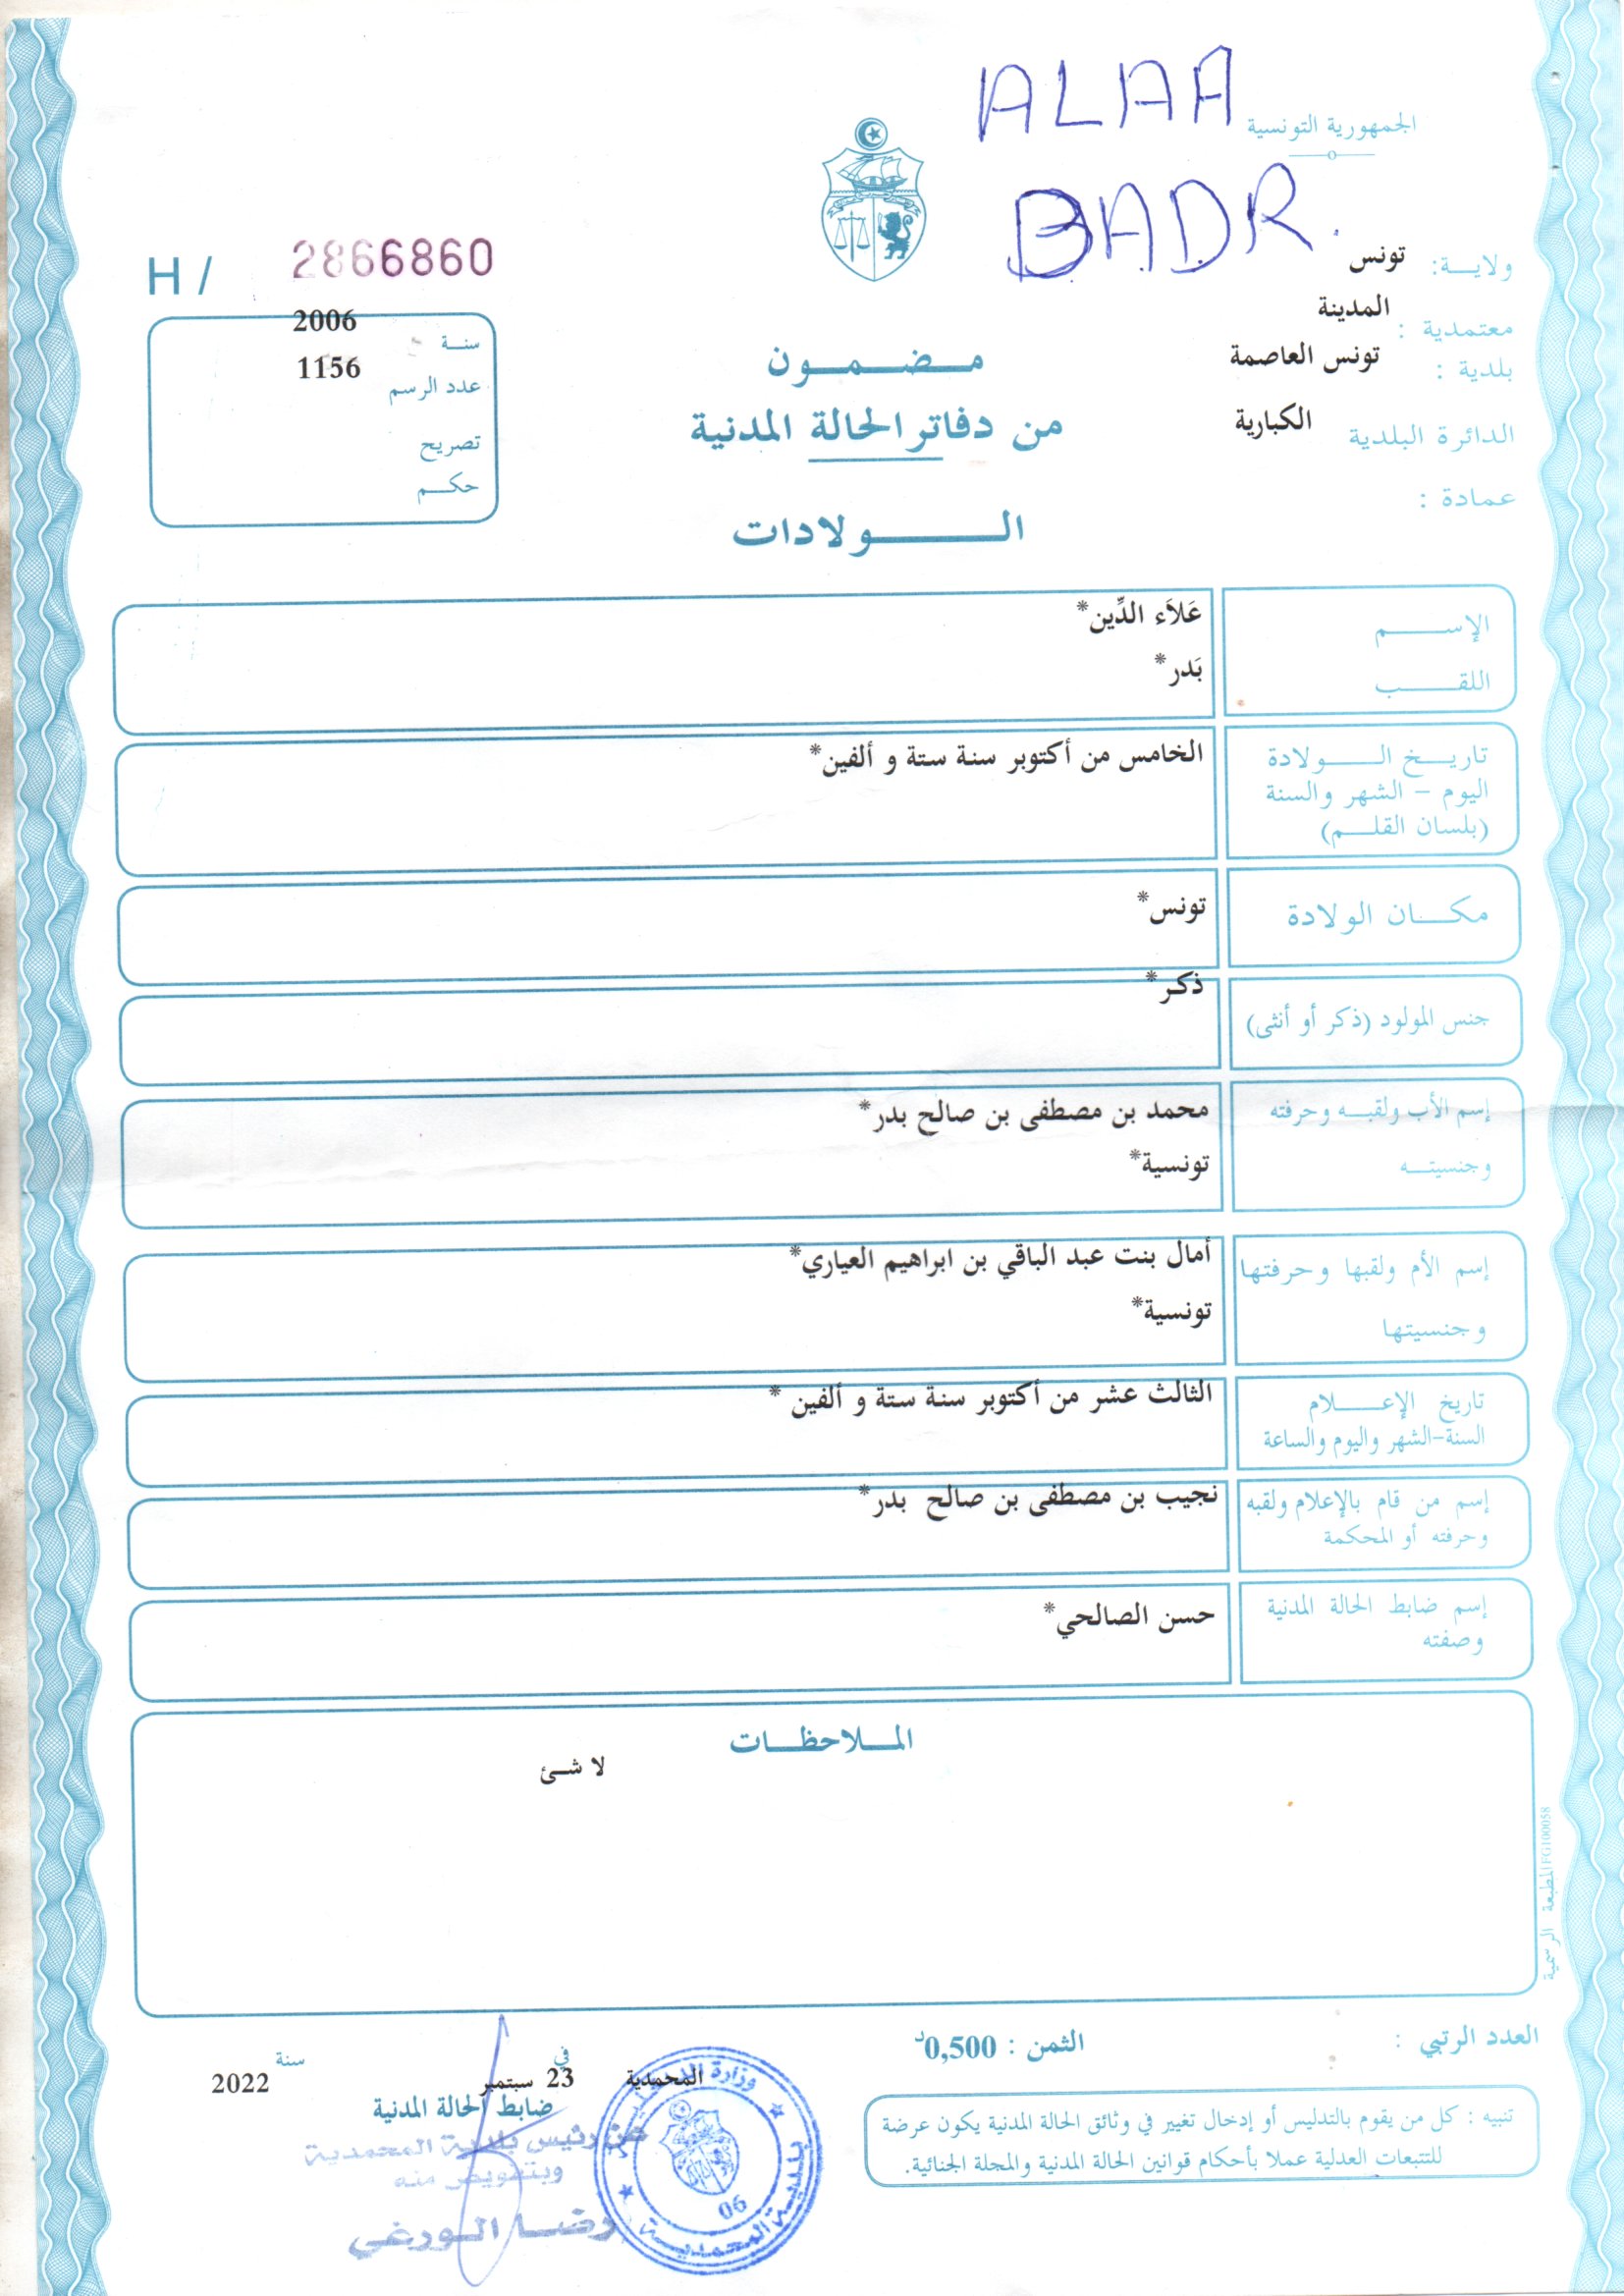 ALAA
BADR.
الجمهورية التونسية
ولايــة: تونس
معتمدية : المدينة
بلدية : تونس العاصمة
الدائرة البلدية الكبارية
عمادة :
H / 2866860
سنــة 2006
عدد الرسم 1156
تصريح
حكــم
مــضــمــون
من دفاتر الحالة المدنية
الــــولادات
الإســــم عَلاَء الدِّين*
اللقــــب بَدر*
تاريــخ الــــولادة الخامس من أكتوبر سنة ستة و ألفين*
اليوم – الشهر والسنة
(بلسان القلــم)
مكــــان الولادة تونس*
جنس المولود (ذكر أو أنثى) ذكـر*
إسم الأب ولقبــه وحرفته محمد بن مصطفى بن صالح بدر*
وجنسيتــه تونسية*
إسم الأم ولقبها وحرفتها أمال بنت عبد الباقي بن ابراهيم العياري*
وجنسيتها تونسية*
تاريخ الإعــــلام الثالث عشر من أكتوبر سنة ستة و ألفين *
السنة-الشهر واليوم والساعة
إسم من قام بالإعلام ولقبه نجيب بن مصطفى بن صالح بدر*
وحرفته أو المحكمة
إسم ضابط الحالة المدنية حسن الصالحي*
وصفته
المــلاحظــات
لا شـئ
المطبعة الرسمية FG100058
العدد الرتبي :
الثمن : 0,500د
المحمدية في 23 سبتمبر سنة 2022
ضابط الحالة المدنية
عن رئيس بلدية المحمدية
وبتفويض منه
رضـا الـورغي
وزارة
بلدية المحمدية
06
تنبيه : كل من يقوم بالتدليس أو إدخال تغيير في وثائق الحالة المدنية يكون عرضة
للتتبعات العدلية عملا بأحكام قوانين الحالة المدنية والمجلة الجنائية.